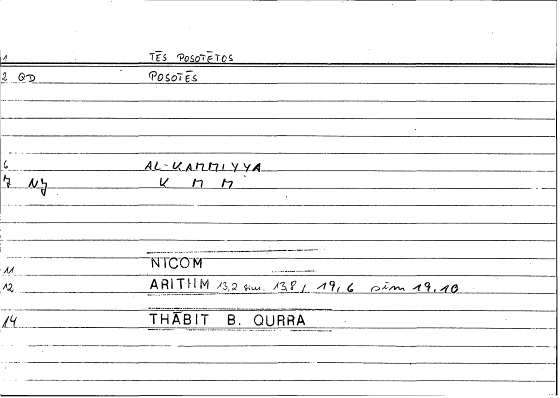 1 TĒS POSOTĒTOS
2 QD POSOTĒS
6 AL-KAMMIYYA
7 NJ K M M
11 NICOM
12 ARITHM 13,2 sim. 13,8, 19,6 sim 19,10
14 THĀBIT B. QURRA